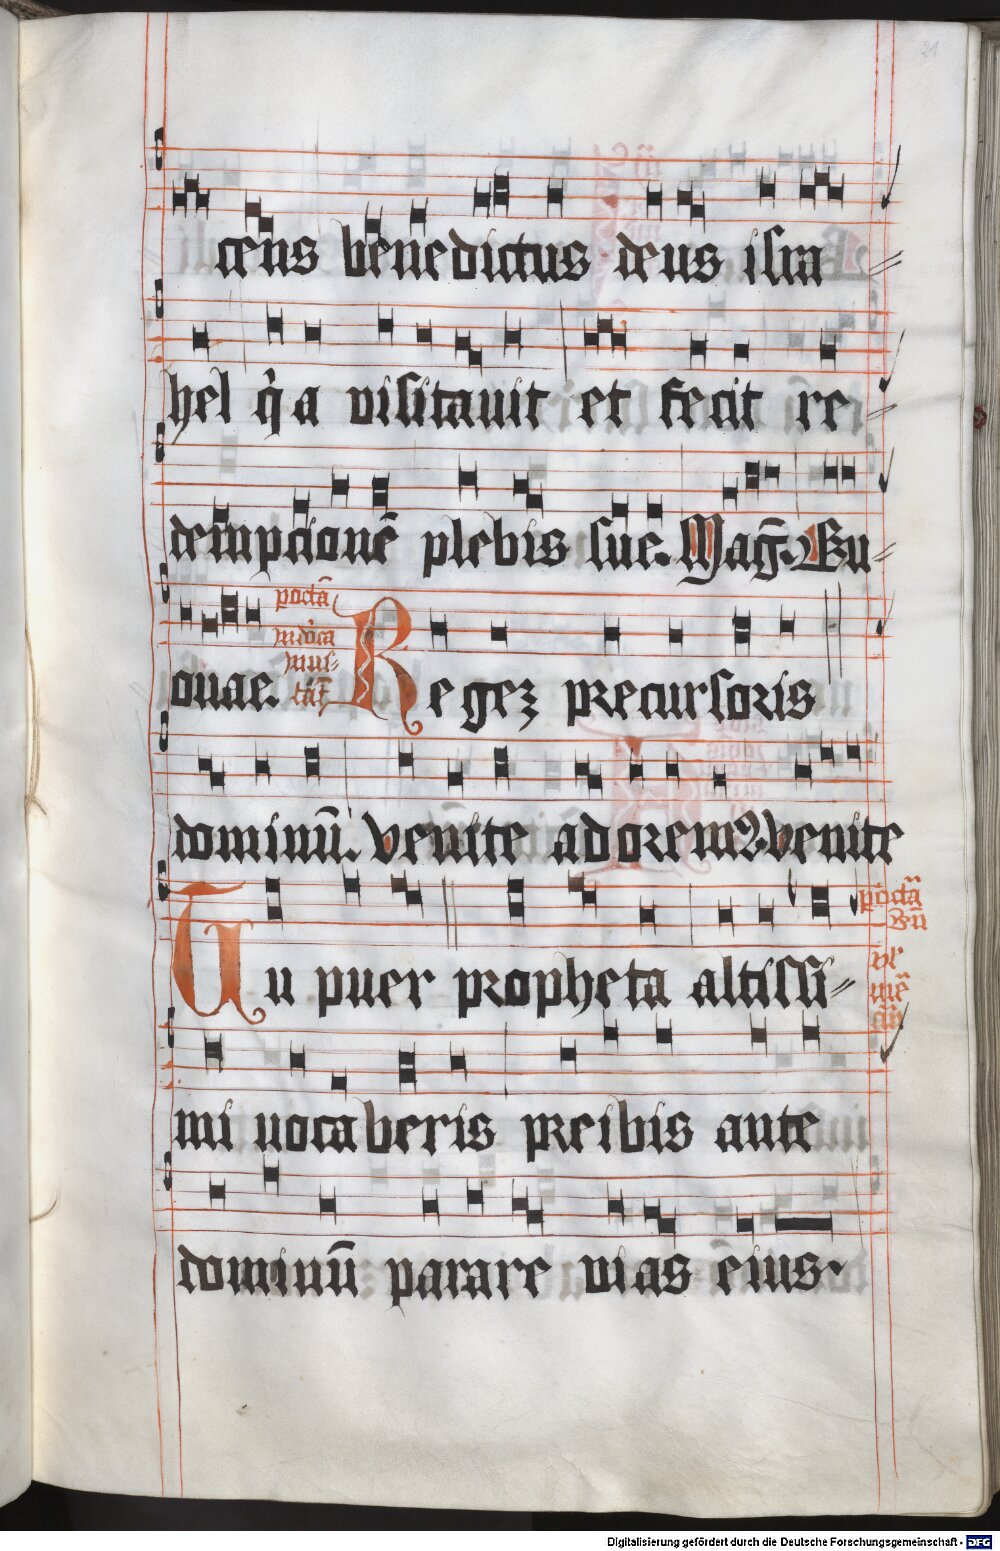 21
cens benedictus deus isra
hel q̇a visitauit et fecit re
demptionē plebis sue. Mag̅. Eu
ouae. Regeʒ precursoris
dominū. Venite adorem9. Venite
Tu puer propheta altissi
mi uocaberis preibis ante
dominū parare vias eius.
Digitalisierung gefördert durch die Deutsche Forschungsgemeinschaft - DFG